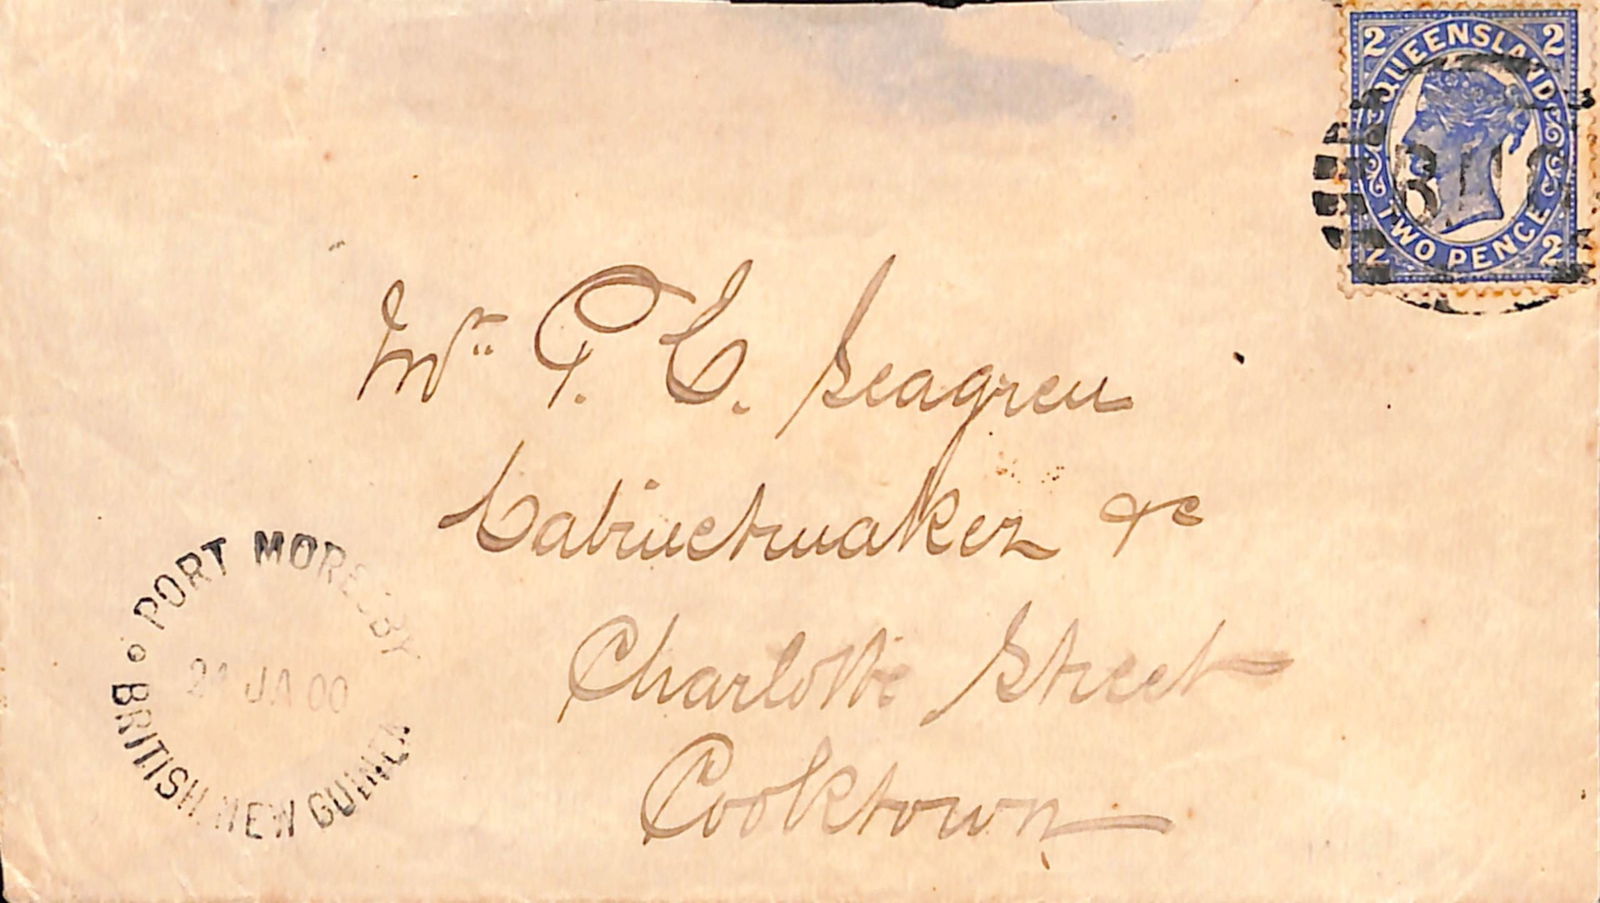 2 QUEENSLAND 2
TWO PENCE
2 2
BNG
Mr. P. C. Seagren
Cabinetmaker &c
Charlotte Street
Cooktown
PORT MORESBY
JA 00
BRITISH NEW GUINEA